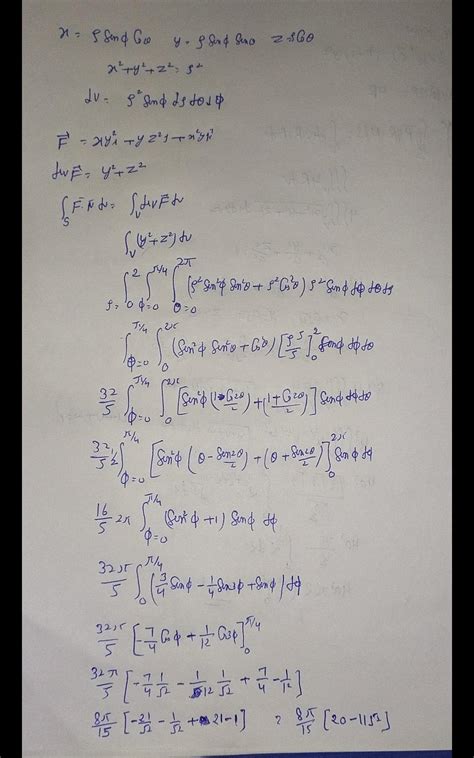 x = ρ Sinϕ Cosθ   y = ρ Sinϕ Sinθ   z = ρCosθ
x² + y² + z² = ρ²
dv = ρ² Sinϕ dρ dθ dϕ
F⃗ = xy²i + yz²j + x²yk
div F⃗ = y² + z²
∫_S F⃗ n̂ ds = ∫_V div F⃗ dv
∫_V (y² + z²) dv
∫_{ρ=0}^{2} ∫_{ϕ=0}^{π/4} ∫_{θ=0}^{2π} (ρ² Sin²ϕ Sin²θ + ρ² Cos²θ) ρ² Sinϕ dϕ dθ dρ
∫_{ϕ=0}^{π/4} ∫_0^{2π} (Sin²ϕ Sin²θ + Cos²θ) [ρ⁵/5]_0^2 Sinϕ dϕ dθ
32/5 ∫_{ϕ=0}^{π/4} ∫_0^{2π} [Sin²ϕ (1-Cos2θ/2) + (1+Cos2θ/2)] Sinϕ dϕ dθ
32/5 1/2 ∫_{ϕ=0}^{π/4} [Sin²ϕ (θ - Sin2θ/2) + (θ + Sin2θ/2)]_0^{2π} Sinϕ dϕ
16/5 2π ∫_{ϕ=0}^{π/4} (Sin²ϕ + 1) Sinϕ dϕ
32π/5 ∫_0^{π/4} (3/4 Sinϕ - 1/4 Sin3ϕ + Sinϕ) dϕ
32π/5 [-7/4 Cosϕ + 1/12 Cos3ϕ]_0^{π/4}
32π/5 [-7/4 1/√2 - 1/12 1/√2 + 7/4 - 1/12]
8π/15 [-21/√2 - 1/√2 + 21 - 1] = 8π/15 [20 - 11√2]